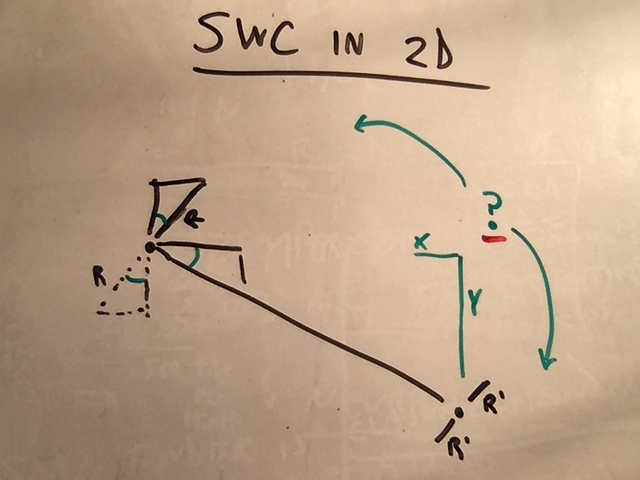 SWC IN 2D
?
R
X
R
Y
R'
R'